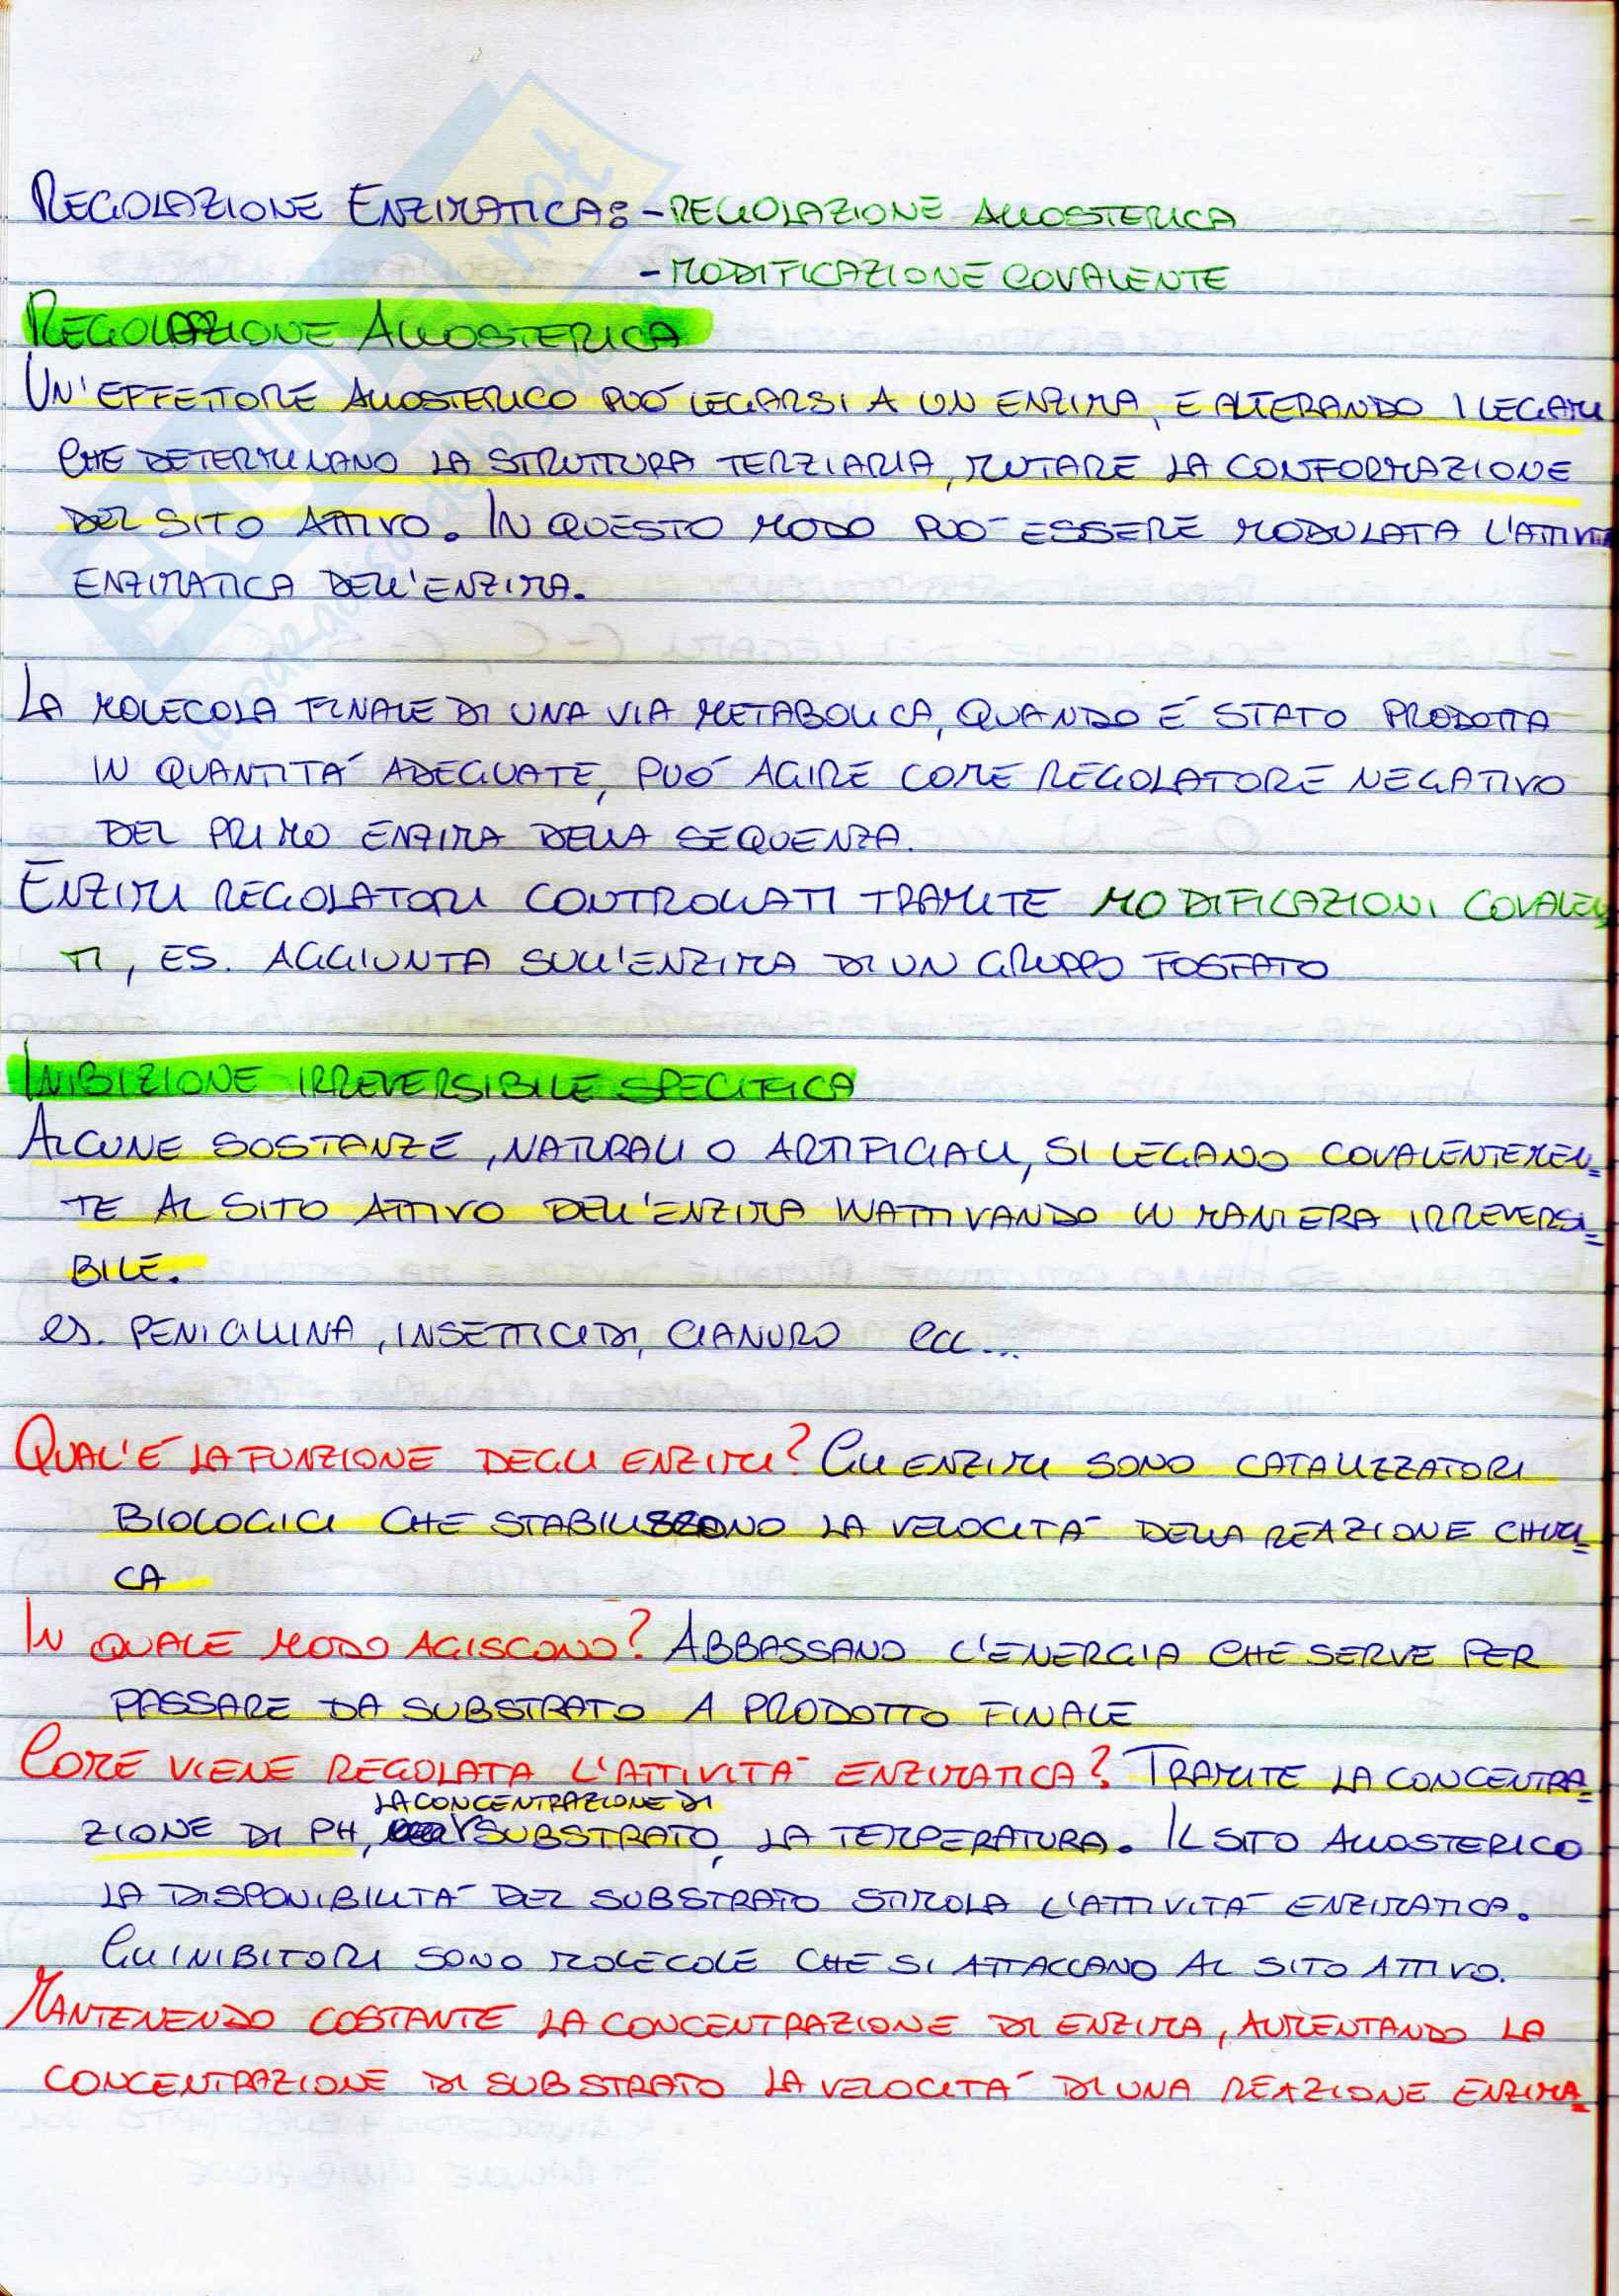 REGOLAZIONE ENZIMATICA: - REGOLAZIONE ALLOSTERICA
- MODIFICAZIONE COVALENTE
REGOLAZIONE ALLOSTERICA
UN'EFFETTORE ALLOSTERICO PUÒ LEGARSI A UN ENZIMA, E ALTERANDO I LEGAMI
CHE DETERMINANO LA STRUTTURA TERZIARIA, MUTARE LA CONFORMAZIONE
DEL SITO ATTIVO. IN QUESTO MODO PUÒ ESSERE MODULATA L'ATTIVITÀ
ENZIMATICA DELL'ENZIMA.
LA MOLECOLA FINALE DI UNA VIA METABOLICA, QUANDO È STATO PRODOTTA
IN QUANTITÀ ADEGUATE, PUÒ AGIRE COME REGOLATORE NEGATIVO
DEL PRIMO ENZIMA DELLA SEQUENZA.
ENZIMI REGOLATORI CONTROLLATI TRAMITE MODIFICAZIONI COVALEN
TI, ES. AGGIUNTA SULL'ENZIMA DI UN GRUPPO FOSFATO
INIBIZIONE IRREVERSIBILE SPECIFICA
ALCUNE SOSTANZE, NATURALI O ARTIFICIALI, SI LEGANO COVALENTEMEN=
TE AL SITO ATTIVO DELL'ENZIMA INATTIVANDO IN MANIERA IRREVERSI=
BILE.
es. PENICILLINA, INSETTICIDI, CIANURO ecc...
QUAL'È LA FUNZIONE DEGLI ENZIMI? GLI ENZIMI SONO CATALIZZATORI
BIOLOGICI CHE STABILISCONO LA VELOCITÀ DELLA REAZIONE CHIMI=
CA
IN QUALE MODO AGISCONO? ABBASSANO L'ENERGIA CHE SERVE PER
PASSARE DA SUBSTRATO A PRODOTTO FINALE
COME VIENE REGOLATA L'ATTIVITÀ ENZIMATICA? TRAMITE LA CONCENTRA=
LA CONCENTRAZIONE DI
ZIONE DI PH, SUBSTRATO, LA TEMPERATURA. IL SITO ALLOSTERICO
LA DISPONIBILITÀ DEL SUBSTRATO STIMOLA L'ATTIVITÀ ENZIMATICA.
GLI INIBITORI SONO MOLECOLE CHE SI ATTACCANO AL SITO ATTIVO.
MANTENENDO COSTANTE LA CONCENTRAZIONE DI ENZIMA, AUMENTANDO LA
CONCENTRAZIONE DI SUBSTRATO LA VELOCITÀ DI UNA REAZIONE ENZIMA=